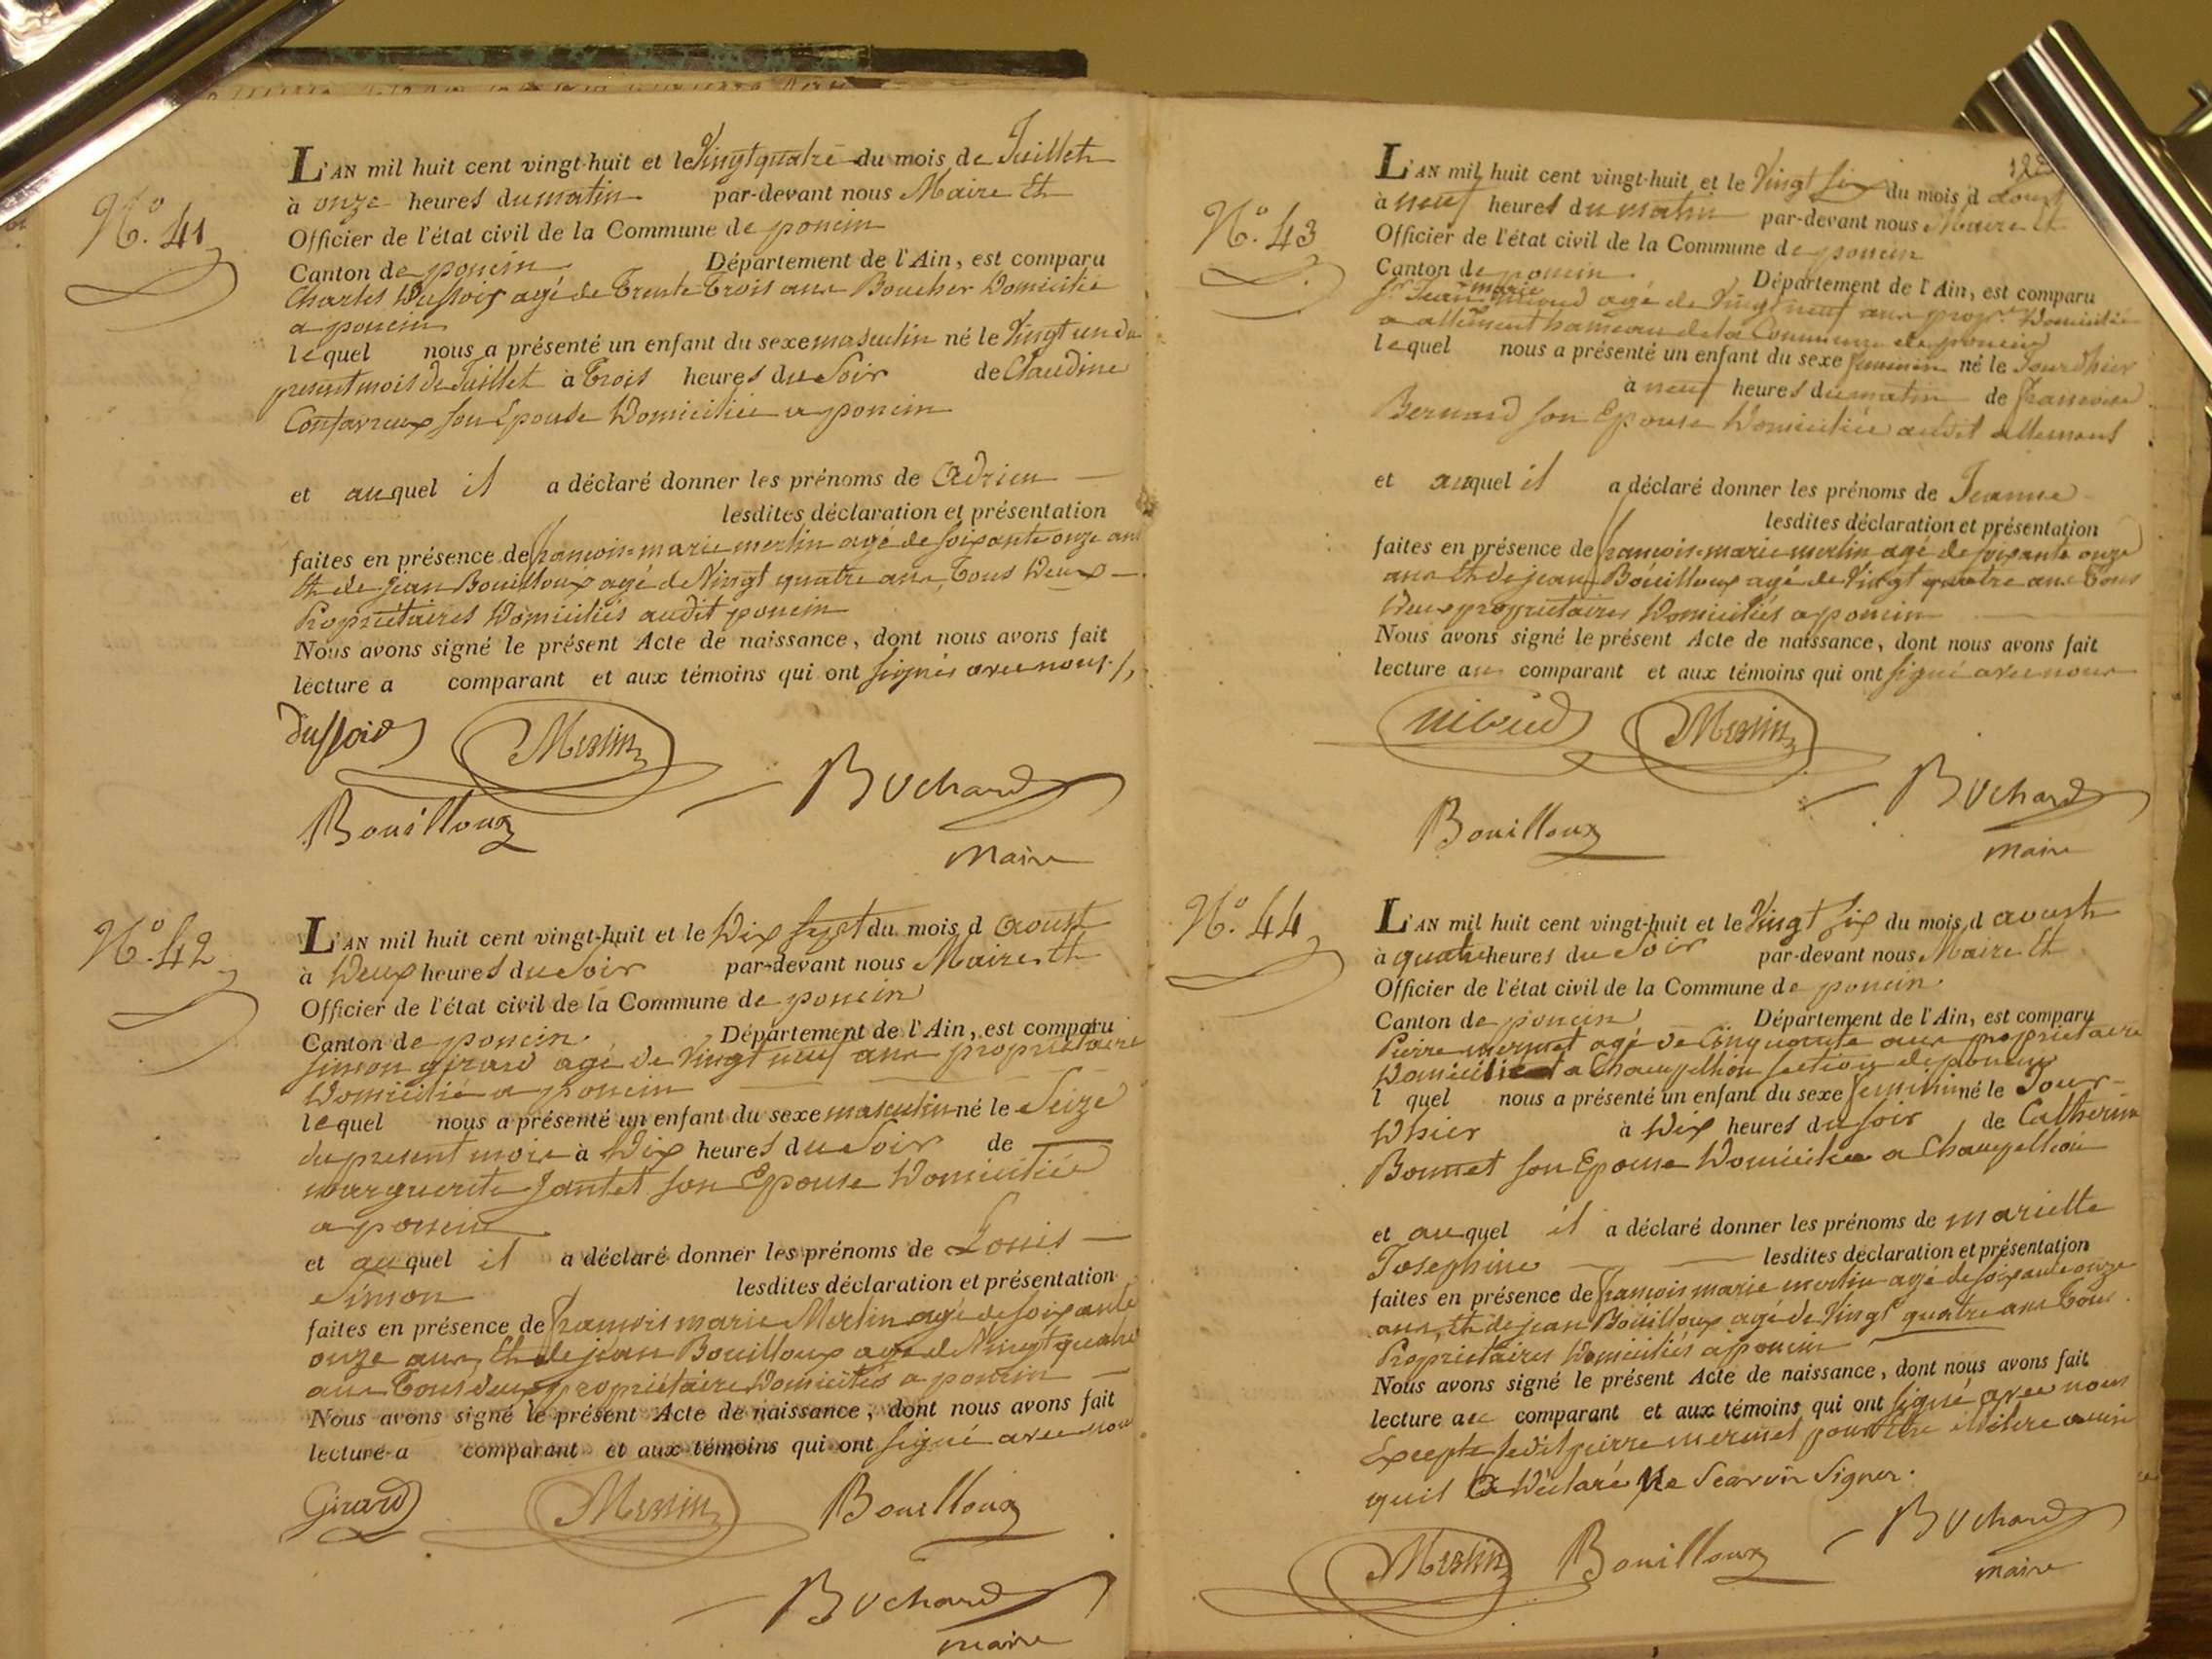 N.º 41
L'AN mil huit cent vingt-huit et le Vingt quatre du mois de Juillet
à onze heures du matin par-devant nous Maire Et
Officier de l'état civil de la Commune de poncin
Canton de poncin Département de l'Ain, est comparu
Charles Dussoix agé de Trente Trois ans Boucher Domicilié
a poncin
lequel nous a présenté un enfant du sexe masculin né le Vingt un du
present mois de Juillet à Trois heures du Soir de Claudine
Convavreux son Epouse Domiciliée a poncin
et auquel il a déclaré donner les prénoms de Adrien
lesdites déclaration et présentation
faites en présence de françois-marie merlin agé de soixante onze ans
Et de jean Bouilloux agé de Vingt quatre ans Tous Deux
Propriétaires Domiciliés audit poncin
Nous avons signé le présent Acte de naissance, dont nous avons fait
lecture a comparant et aux témoins qui ont signés avec nous
Merlin
Bouilloux
Buchard
maire
N.º 42
L'AN mil huit cent vingt-huit et le Dix Sept du mois d Aoust
à Deux heures du Soir par-devant nous Maire Et
Officier de l'état civil de la Commune de poncin
Canton de poncin Département de l'Ain, est comparu
simon girard agé de Vingt neuf ans propriétaire
Domicilié a poncin
lequel nous a présenté un enfant du sexe masculin né le Seize
du present mois à Dix heures du Soir de
marguerite Jantet son Epouse Domiciliée
a poncin
et auquel il a déclaré donner les prénoms de Louis
Simon lesdites déclaration et présentation
faites en présence de françois marie Merlin agé de soixante
onze ans, Et de jean Bouilloux agé de Vingt quatre
ans Tous deux propriétaire Domiciliés a poncin
Nous avons signé le présent Acte de naissance, dont nous avons fait
lecture a comparant et aux témoins qui ont signé avec nous
Girard Merlin Bouilloux
Buchard
maire
N.º 43
L'AN mil huit cent vingt-huit et le Vingt Six du mois d Aoust
à neuf heures du matin par-devant nous Maire Et
Officier de l'état civil de la Commune de poncin
Canton de poncin Département de l'Ain, est comparu
Sr Jean marie nioud agé de Vingt neuf ans propre Domicilié
a allement hameau de la Commune de poncin
lequel nous a présenté un enfant du sexe feminin né le Jour d'hier
à neuf heures du matin de françoise
Bernard son Epouse Domiciliée audit allement
et auquel il a déclaré donner les prénoms de Jeanne
lesdites déclaration et présentation
faites en présence de françois-marie merlin agé de soixante onze
ans Et de jean Bouilloux agé de Vingt quatre ans Tous
Deux propriétaires Domiciliés a poncin
Nous avons signé le présent Acte de naissance, dont nous avons fait
lecture au comparant et aux témoins qui ont signé avec nous
Merlin
Bouilloux
Buchard
maire
N.º 44
L'AN mil huit cent vingt-huit et le Vingt Six du mois d aoust
à quatre heures du Soir par-devant nous Maire Et
Officier de l'état civil de la Commune de poncin
Canton de poncin Département de l'Ain, est comparu
Pierre mermet agé de Cinquante ans propriétaire
Domicilié a Champellion section de poncin
l quel nous a présenté un enfant du sexe feminin né le Jour
D'hier à Dix heures du soir de Catherine
Bonnet son Epouse Domiciliée a Champellion
et auquel il a déclaré donner les prénoms de mariette
Josephine lesdites déclaration et présentation
faites en présence de françois marie merlin agé de soixante onze
ans, Et de jean Bouilloux agé de Vingt quatre ans Tous
Propriétaires Domiciliés a poncin
Nous avons signé le présent Acte de naissance, dont nous avons fait
lecture au comparant et aux témoins qui ont signé avec nous
Excepté ledit pierre mermet pour Etre illitere ainsi
quil a Déclaré Ne Scavoir Signer.
Merlin Bouilloux Buchard
maire